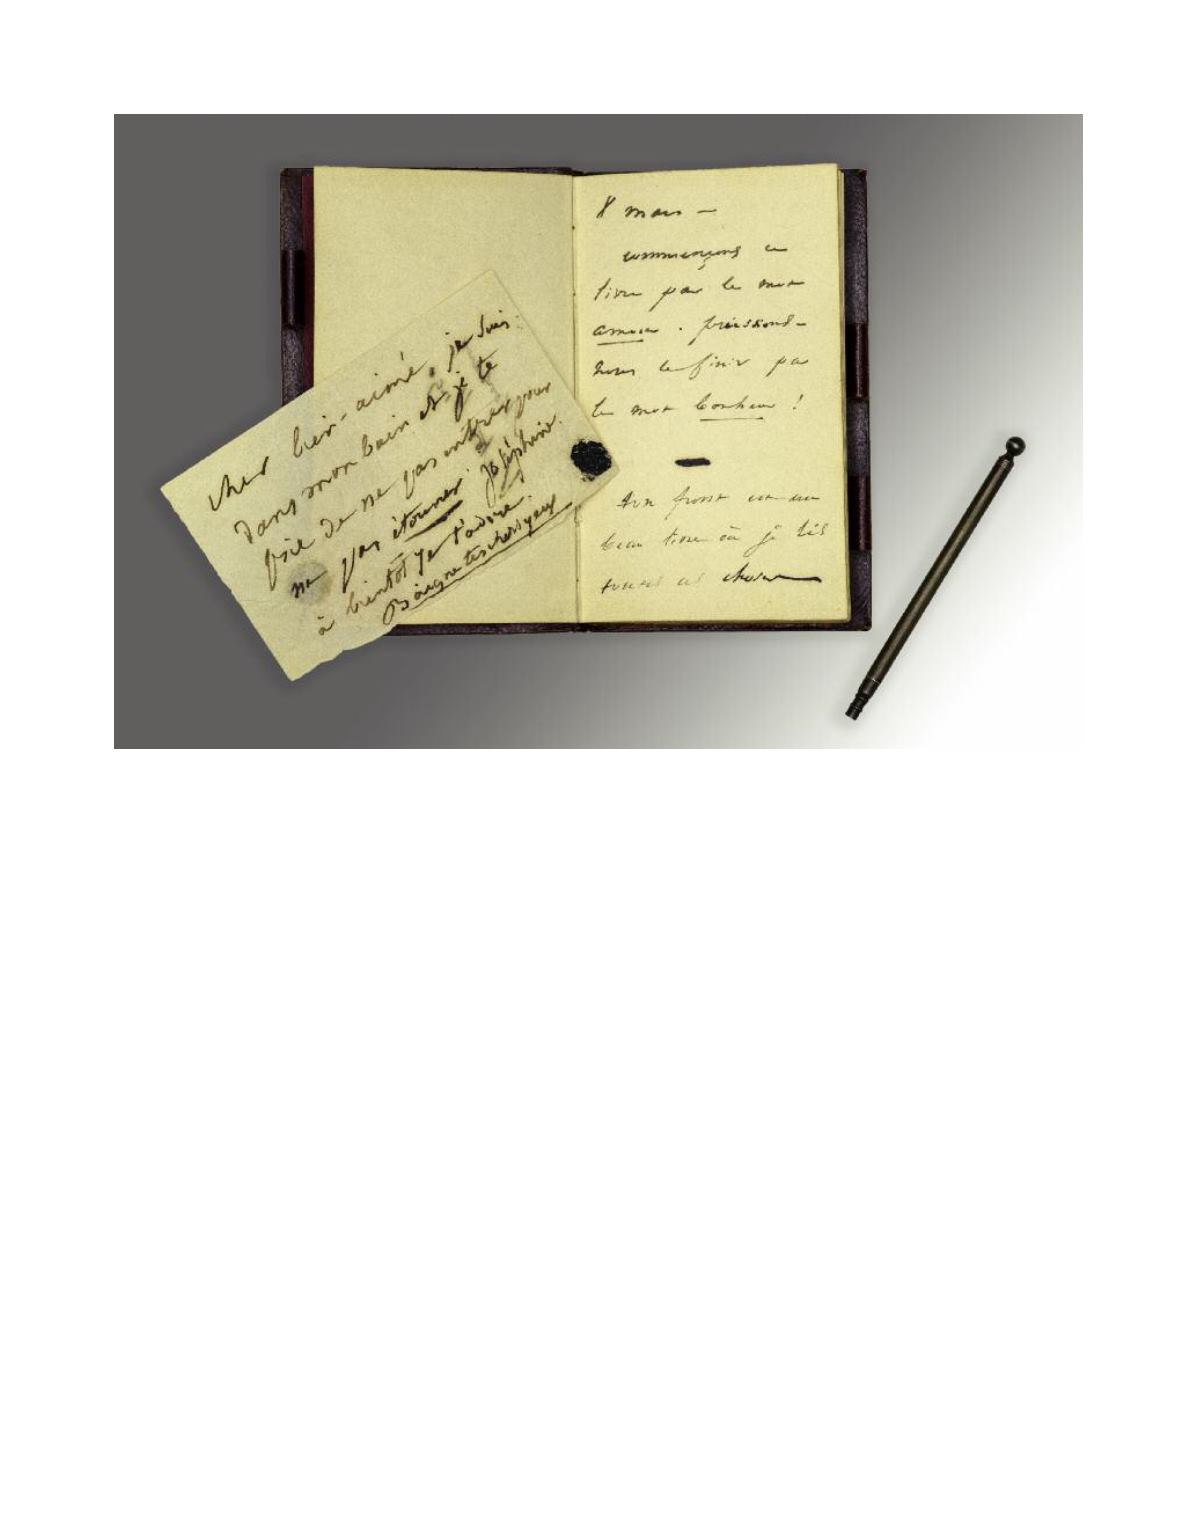 cher bien-aimé, je suis
dans mon bain et je te
prie de ne pas entrer pour
ne pas étonner Joséphine.
à bientôt je t'adore.
Baigne tes chers yeux
8 mars —
commençons ce
livre par le mot
amour. puissions-
nous le finir par
le mot bonheur !
—
ton front est un
beau livre où je lis
toutes ces choses